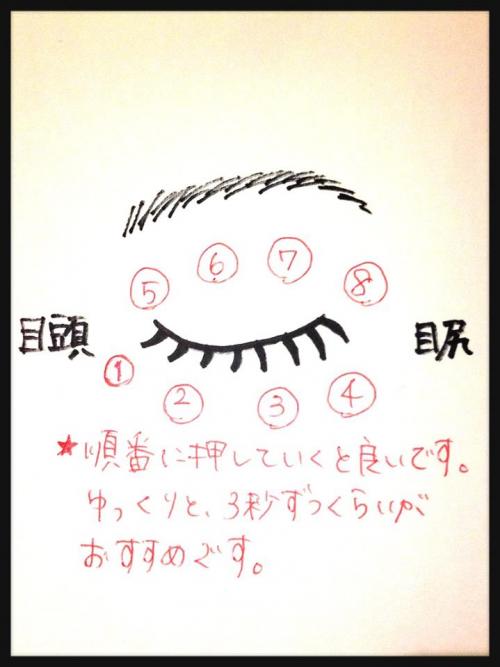 ⑤ ⑥ ⑦ ⑧
目頭 目尻
① ② ③ ④
★順番に押していくと良いです。
ゆっくりと、3秒ずつくらいが
おすすめです。